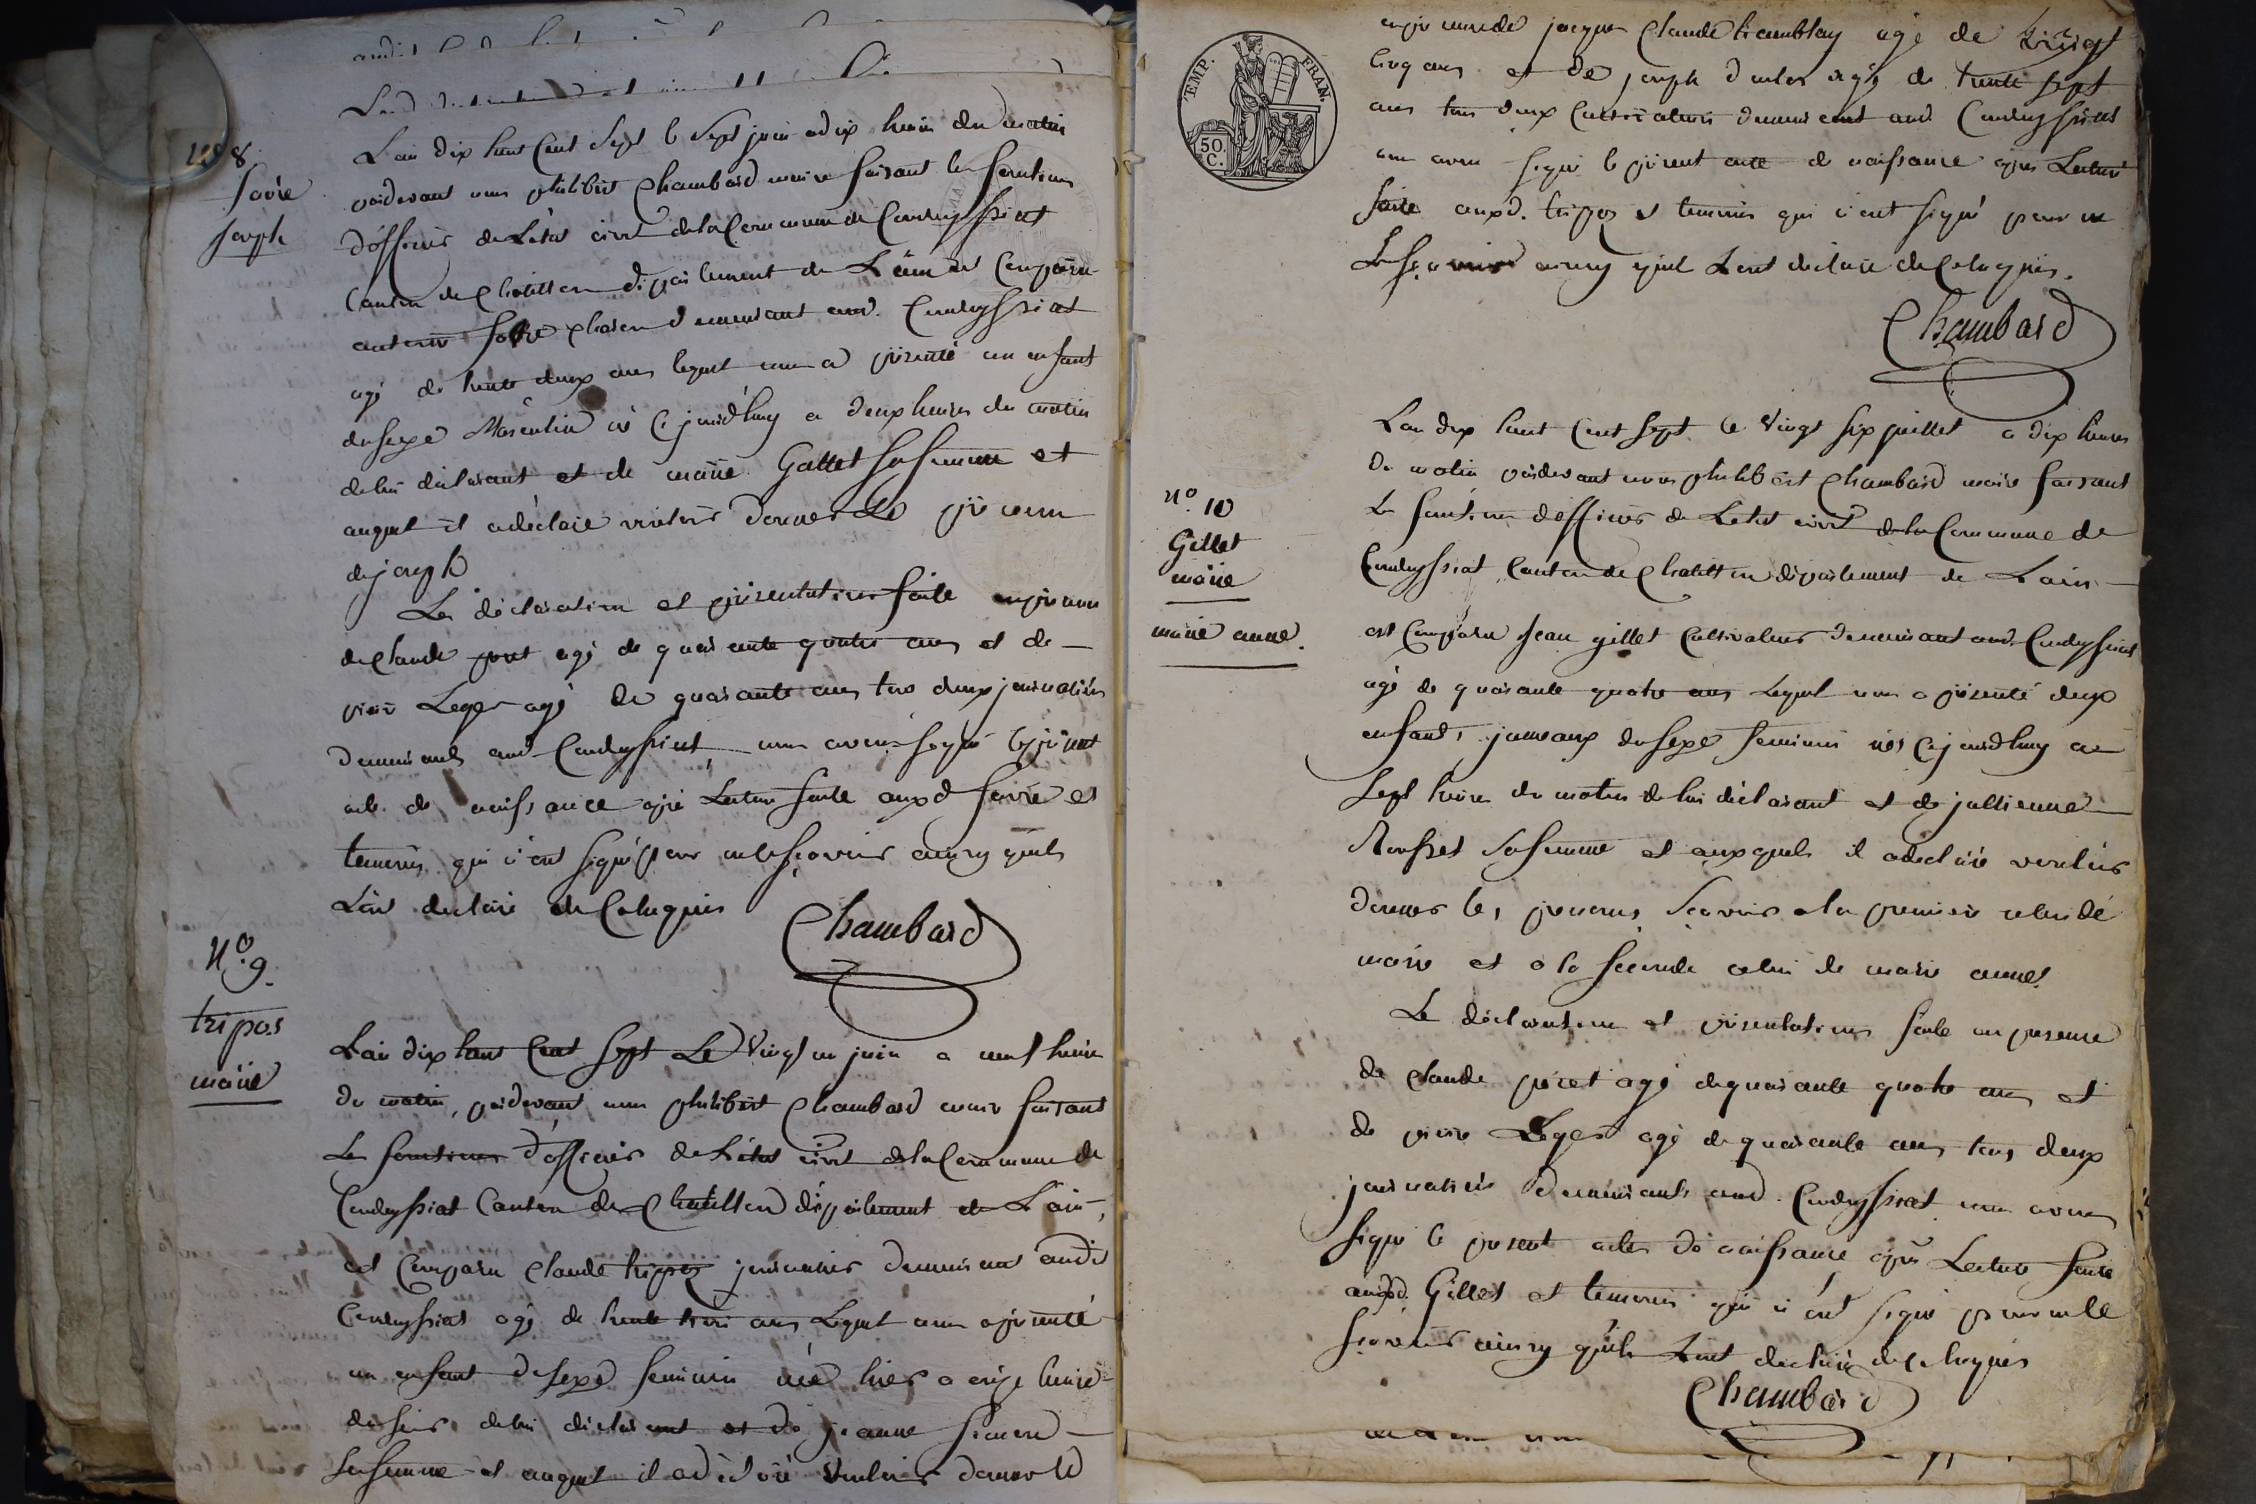 N.º 8.
favre
joseph
L'an dix huit Cent Sept le Sept juin a dix heures du matin
pardevant nous philibert Chambard maire faisant les fonctions
d'officier de L'état civil de la Commune de Condeyssiat
Canton de Chatillon département de L'ain est Comparu
demeurant aud. Condeyssiat
agé de trente deux ans lequel nous a présenté un enfant
du sexe Masculin né Cejourdhuy a deux heures du matin
de lui déclarant et de marie Gallet sa femme et
auquel il a déclaré vouloir donner Le prénom
de joseph
Les déclaration et présentation faite en présence
de Claude agé de quarante quatre ans et de
pierre Leger agé de quarante ans tous deux journaliers
demeurants aud. Condeyssiat, nous avons signé le présent
acte de naissance après Lecture faite auxd. favre et
temoins qui n'ont signé pour ne le sçavoir ainsy quils
L'ont déclaré de Ce Requis
Chambard
N.º 9.
tripos
marie
L'an dix huit Cent Sept Le vingt un juin a neuf heures
du matin, pardevant nous philibert Chambard maire faisant
Les fonctions d'officier de L'état civil de la Commune de
Condeyssiat Canton de Chatillon département de L'ain,
est Comparu Claude trippoz journalier demeurant audit
Condeyssiat agé de trente trois ans Lequel nous a présenté
un enfant de sexe feminin née hier a onze heures
du soir de lui déclarant et de jeanne
sa femme et auquel il a déclaré vouloir donner le
TEMP. FRAN.
50. C.
en présence de jacques Claude tremblay agé de vingt
cinq ans et de joseph agé de trente sept
ans tous deux Cultivateurs demeurant aud. Condeyssiat
nous avons signé le présent acte de naissance après Lecture
faite auxd. trippoz et temoins qui n'ont signé pour ne
Le sçavoir ainsy quil L'ont déclaré de Ce Requis.
Chambard
N.º 10
Gillet
marie
marie anne.
L'an dix huit Cent Sept le vingt six juillet a dix heures
du matin pardevant nous philibert Chambard maire faisant
Les fonctions d'officier de Letat civil de la Commune de
Condeyssiat Canton de Chatillon département de L'ain
est Comparu Jean gillet Cultivateur demeurant aud. Condeyssiat
agé de quarante quatre ans Lequel nous a présenté deux
enfants jumeaux du sexe feminin nés Cejourdhuy a
Sept heures du matin de lui déclarant et de jullienne
sa femme et auxquels il a déclaré vouloir
donner les prenoms Sçavoir a la premiere celui de
marie et a la seconde celui de marie anne.
Le déclaration et présentation faite en presence
de Claude agé de quarante quatre ans et
de pierre Leger agé de quarante ans tous deux
journaliers demeurants aud. Condeyssiat nous avons
signé le present acte de naissance après Lecture faite
auxd. Gillet et temoins qui n'ont signé pour ne le
sçavoir ainsy qu'ils L'ont déclaré de Ce Requis
Chambard